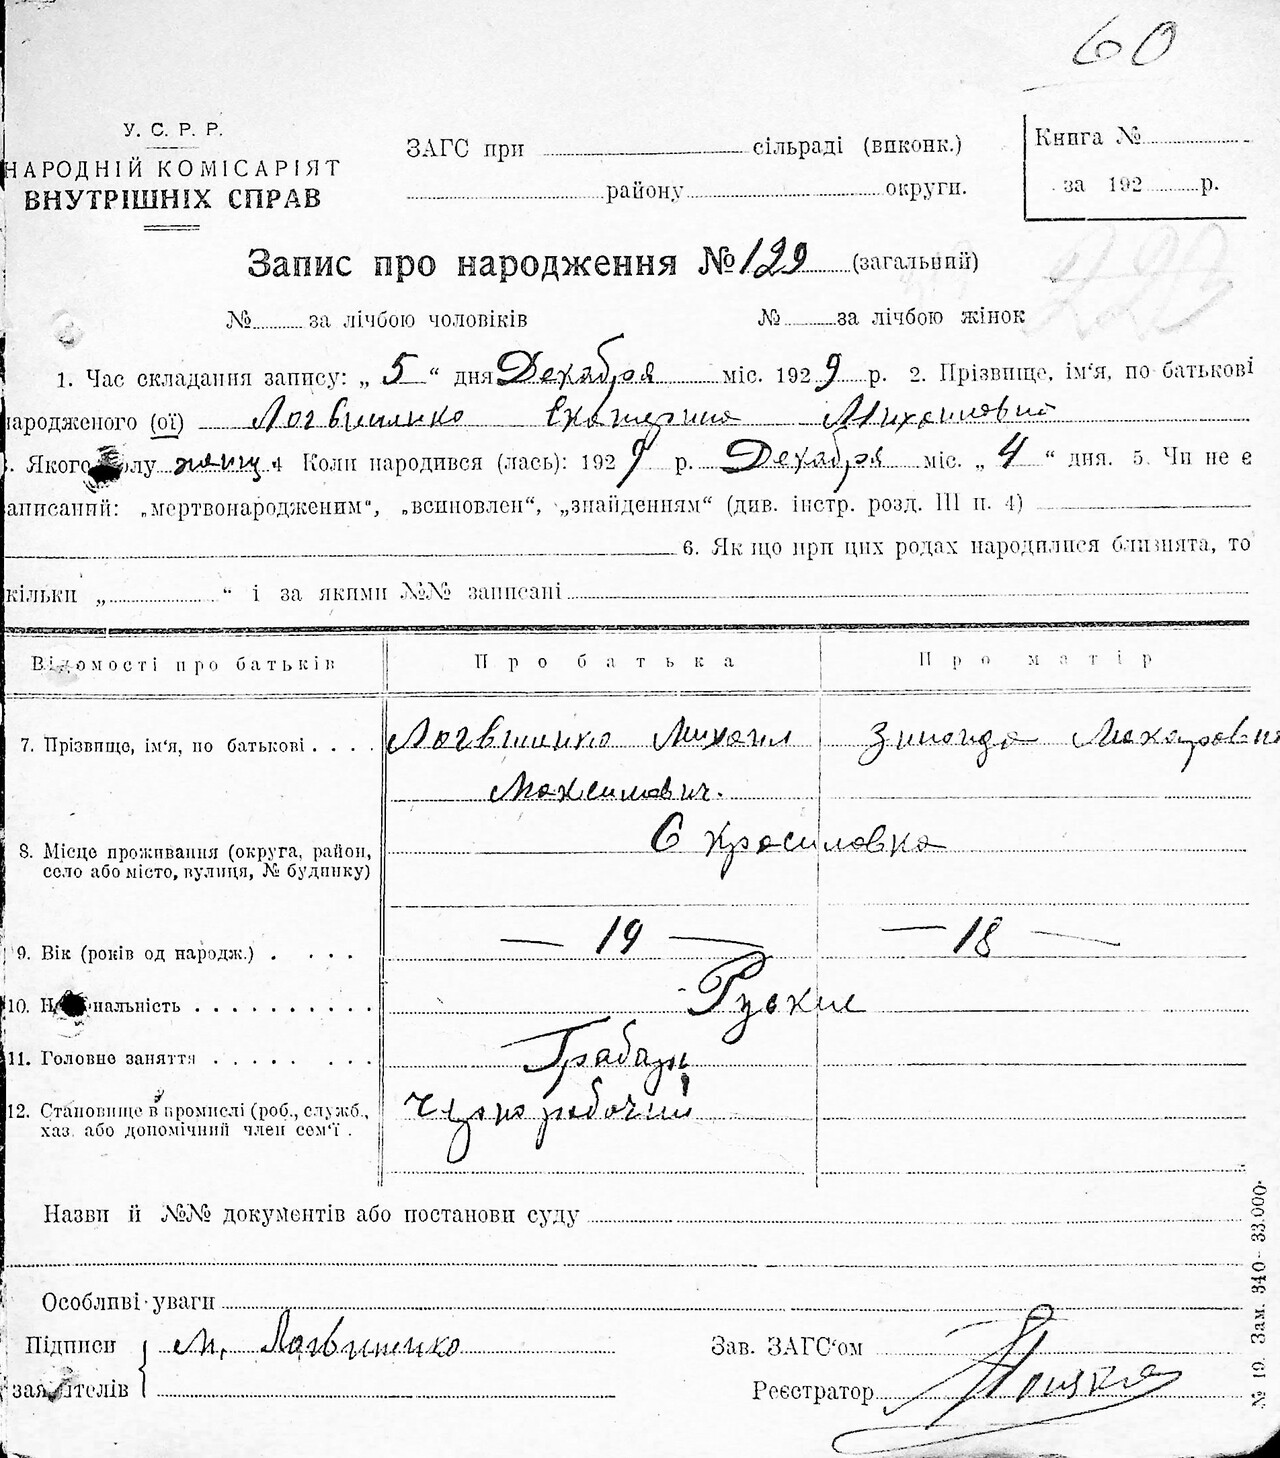 60
У. С. Р. Р.
НАРОДНІЙ КОМІСАРІЯТ
ВНУТРІШНІХ СПРАВ
ЗАГС при сільраді (виконк.)
району округи.
Книга №
за 192 р.
Запис про народження № 129 (загальний)
№ за лічбою чоловіків № за лічбою жінок
1. Час складання запису: „ 5 “ дня Декабря міс. 192 9 р. 2. Прізвище, ім'я, по батькові
народженого (ої) Логвиненко Екатерина Михайловна
Якого полу женщ 4 Коли народився (лась): 192 9 р. Декабря міс. „ 4 “ дня. 5. Чи не є
записаний: „мертвонародженим“, „всиновлен“, „знайденням“ (див. інстр. розд. III п. 4)
6. Як що при цих родах народилися близнята, то
кільки „ “ і за якими №№ записані
Відомості про батьків Про батька Про матір
7. Прізвище, ім'я, по батькові . . . . Логвиненко Михаил Зинаида Макаровна
Максимович.
8. Місце проживання (округа, район, С Красиловка
село або місто, вулиця, № будинку)
9. Вік (років од народж.) . . . . — 19 — — 18 —
10. Національність . . . . . . . . . . Руские
11. Головне заняття . . . . . . . . Грабарь
12. Становище в промислі (роб., служб., рабочий
хаз. або допомічний член сем'ї .
Назви й №№ документів або постанови суду
Особливі уваги
Підписи М. Логвиненко Зав. ЗАГС‘ом
заявителів Реєстратор
№ 19. Зам. 340—33.000.